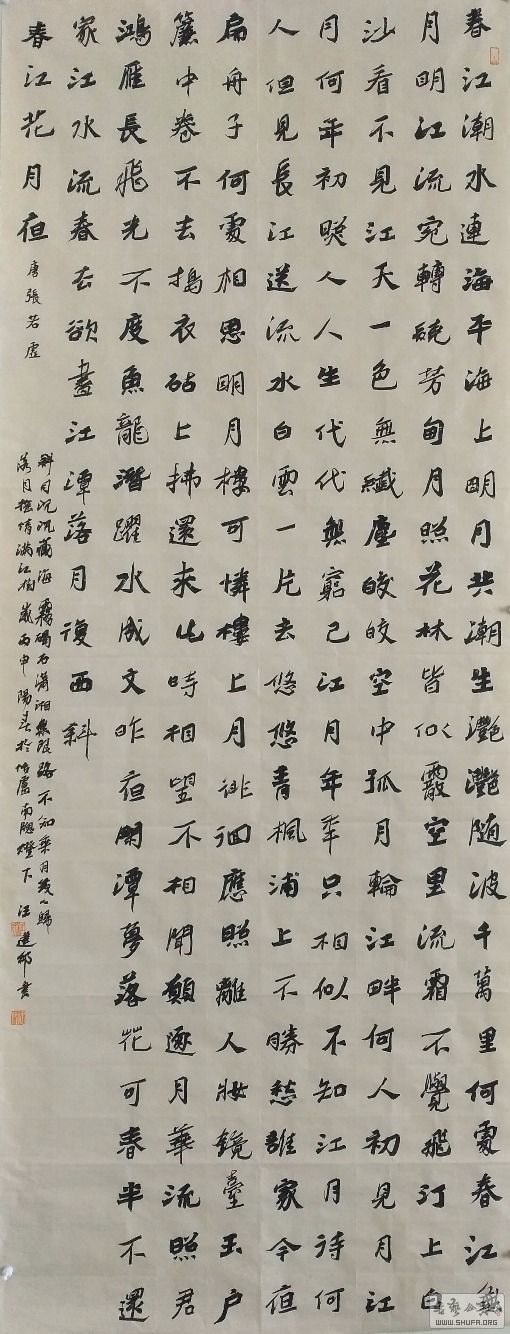 春江潮水連海平海上明月共潮生灧灧随波千萬里何處春江無
月明江流宛轉繞芳甸月照花林皆似霰空里流霜不覺飛汀上白
沙看不見江天一色無纖塵皎皎空中孤月輪江畔何人初見月江
月何年初照人人生代代無窮已江月年年只相似不知江月待何
人但見長江送流水白雲一片去悠悠青楓浦上不勝愁誰家今夜
扁舟子何處相思明月樓可憐樓上月徘徊應照離人妝鏡臺玉户
簾中卷不去搗衣砧上拂還来此時相望不相聞願逐月華流照君
鴻雁長飛光不度魚龍潛躍水成文昨夜閑潭夢落花可春半不還
家江水流春去欲盡江潭落月復西斜
春江花月夜
唐張若虛
斜月沉沉藏海霧碣石瀟湘無限路不知乘月幾人歸
落月摇情滿江樹歲丙申陽春於廬南牕燈下汪建邨書
WWW.SHUFA.ORG